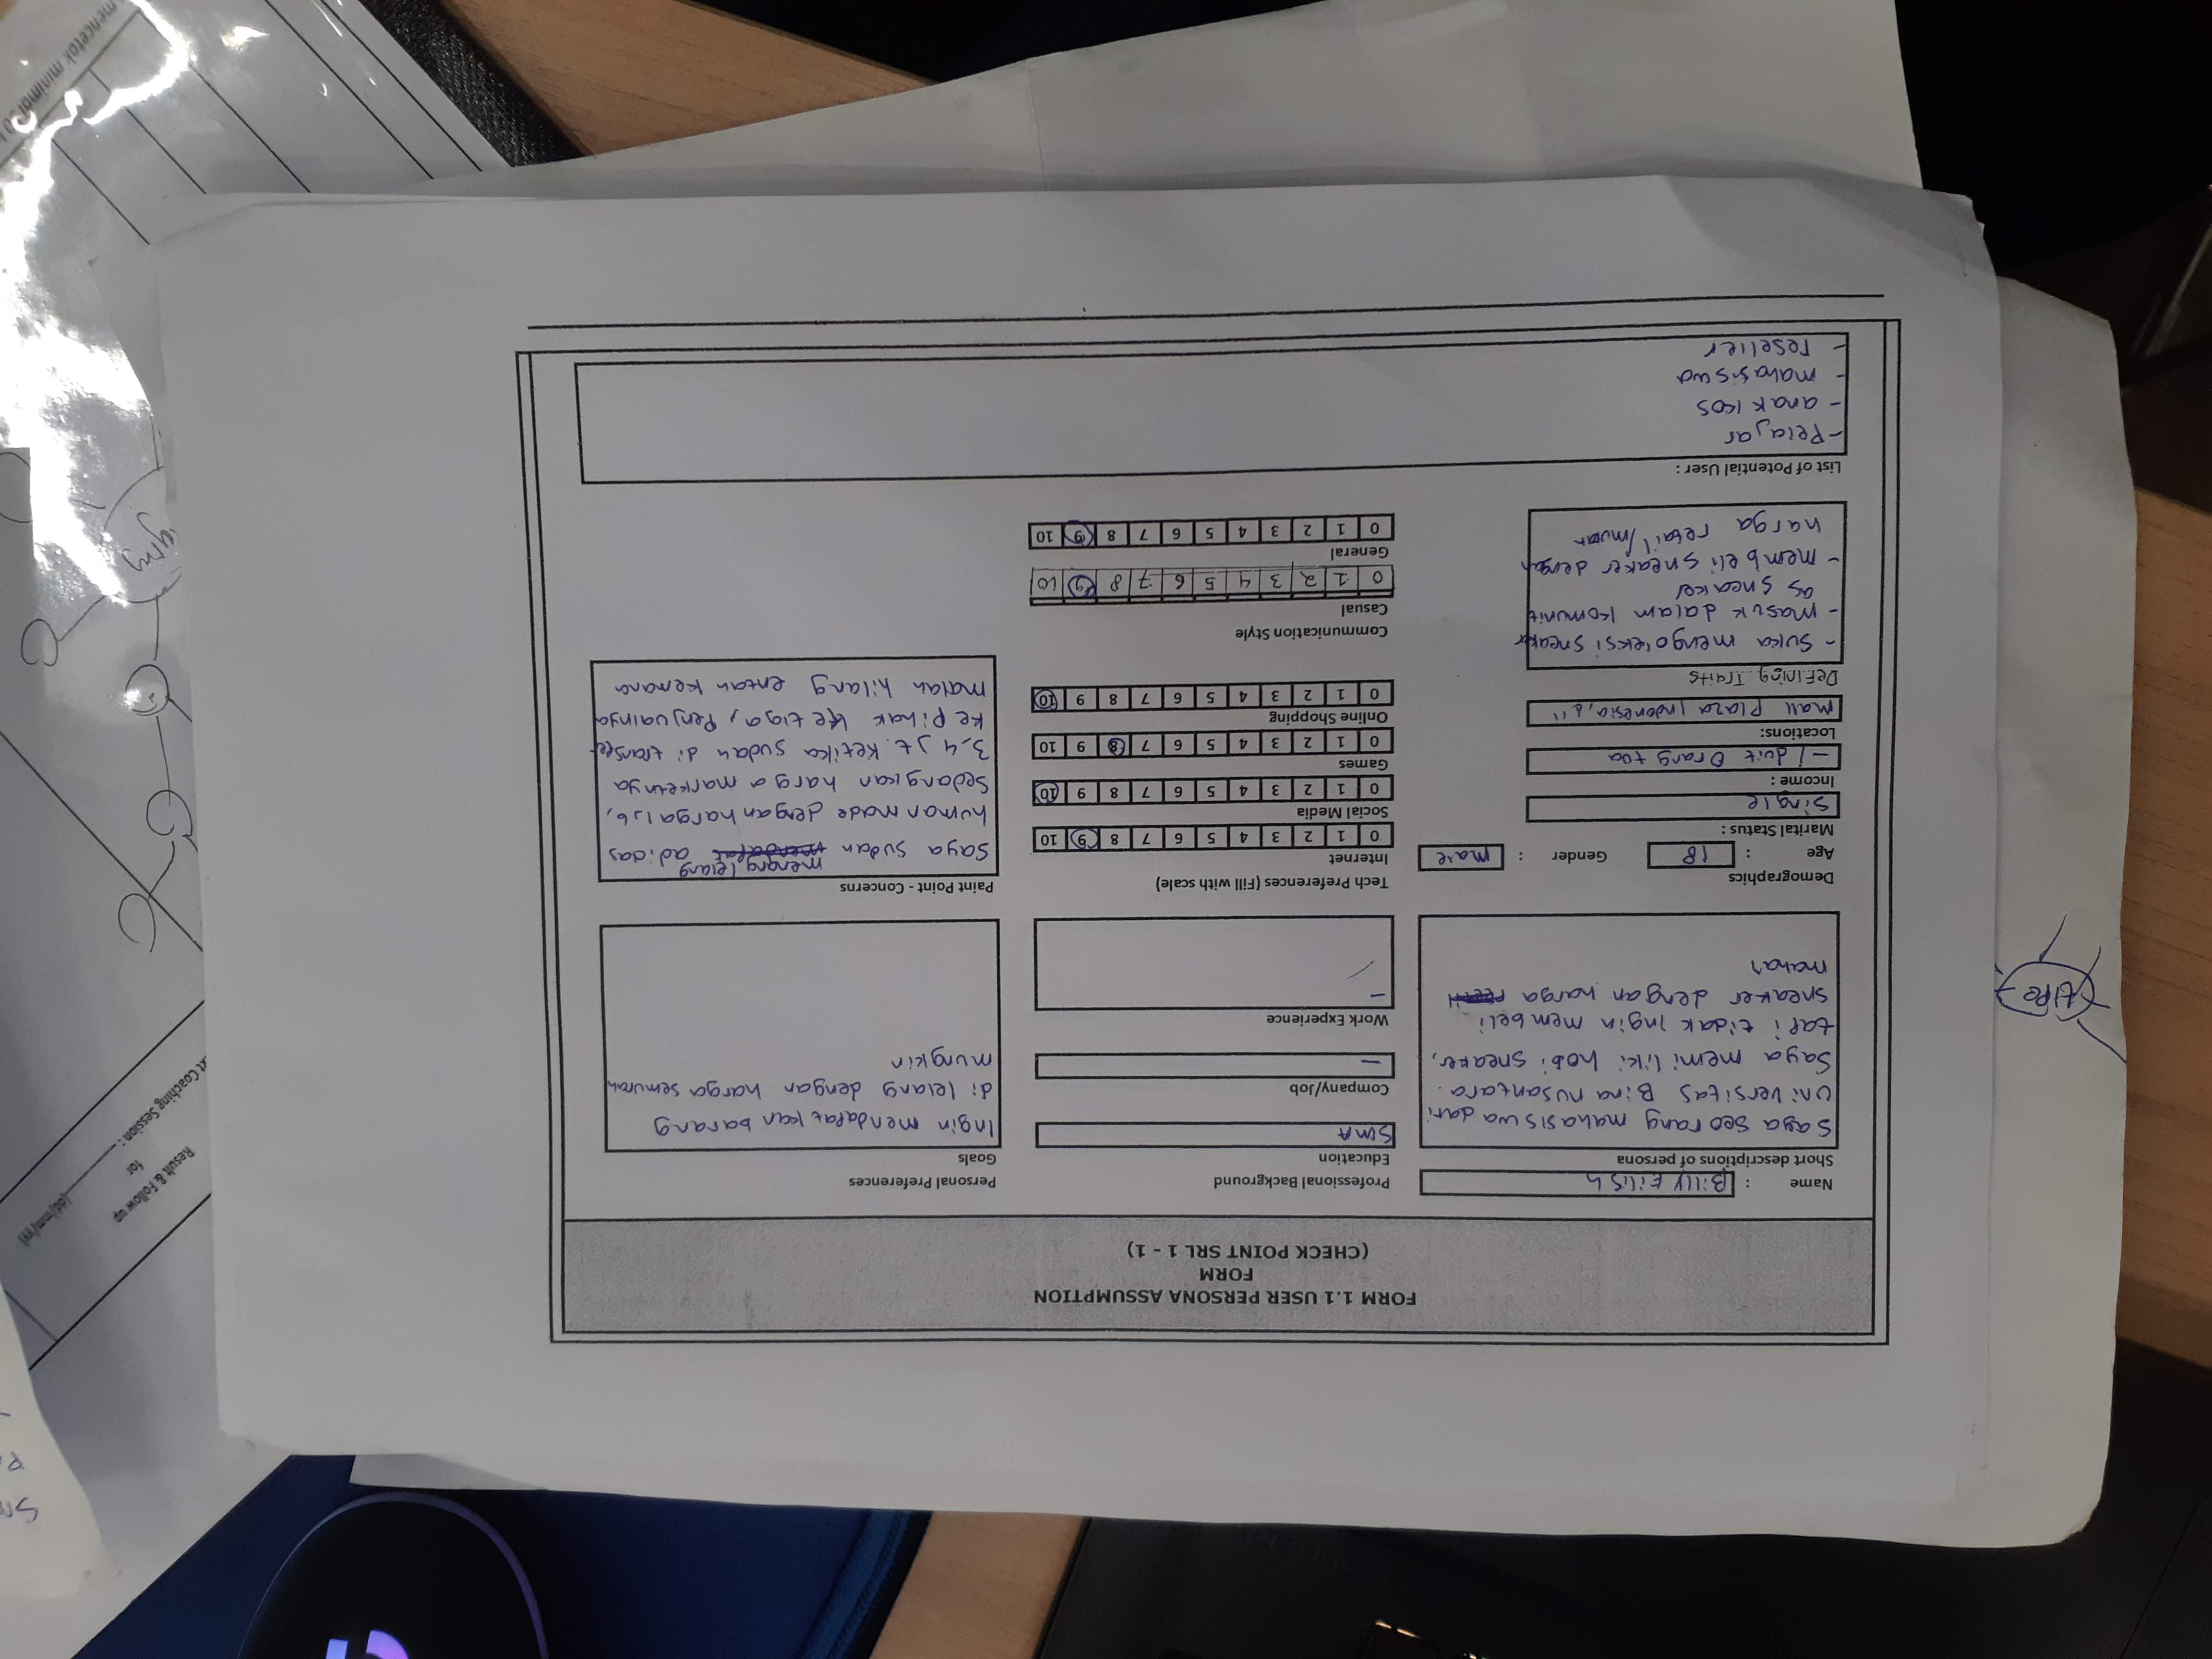 FORM 1.1 USER PERSONA ASSUMPTION
FORM
(CHECK POINT SRL 1 - 1)
Name : Billy Eilish
Short descriptions of persona
Saya seorang mahasiswa dari
Universitas Bina nusantara.
Saya memiliki hobi sneaker,
tapi tidak ingin membeli
sneaker dengan harga
mahal
Demographics
Age : 18 Gender : male
Marital Status :
Single
Income :
- / duit orang tua
Locations:
mall Plaza Indonesia, dll
Defining Traits
- Suka mengoleksi sneaker
- masuk dalam komunit
as sneaker
- membeli sneaker dengan
harga retail/murah
Professional Background
Education
SMA
Company/Job
-
Work Experience
-
Tech Preferences (Fill with scale)
Internet
0 1 2 3 4 5 6 7 8 9 10
Social Media
0 1 2 3 4 5 6 7 8 9 10
Games
0 1 2 3 4 5 6 7 8 9 10
Online Shopping
0 1 2 3 4 5 6 7 8 9 10
Communication Style
Casual
0 1 2 3 4 5 6 7 8 9 10
General
0 1 2 3 4 5 6 7 8 9 10
Personal Preferences
Goals
Ingin mendapatkan barang
di lelang dengan harga semurah
mungkin
Paint Point - Concerns
Saya sudah menang lelang adidas
human made dengan harga
sedangkan harga marketnya
3,4 jt. Ketika sudah di transfer
ke pihak ketiga, Penjualnya
malah hilang entah kemana
List of Potential User :
- Pelajar
- anak kos
- mahasiswa
- reseller
tipe
Result & Follow up
for
Coaching Session :
(dd/mm/yy)
mencetak minimal